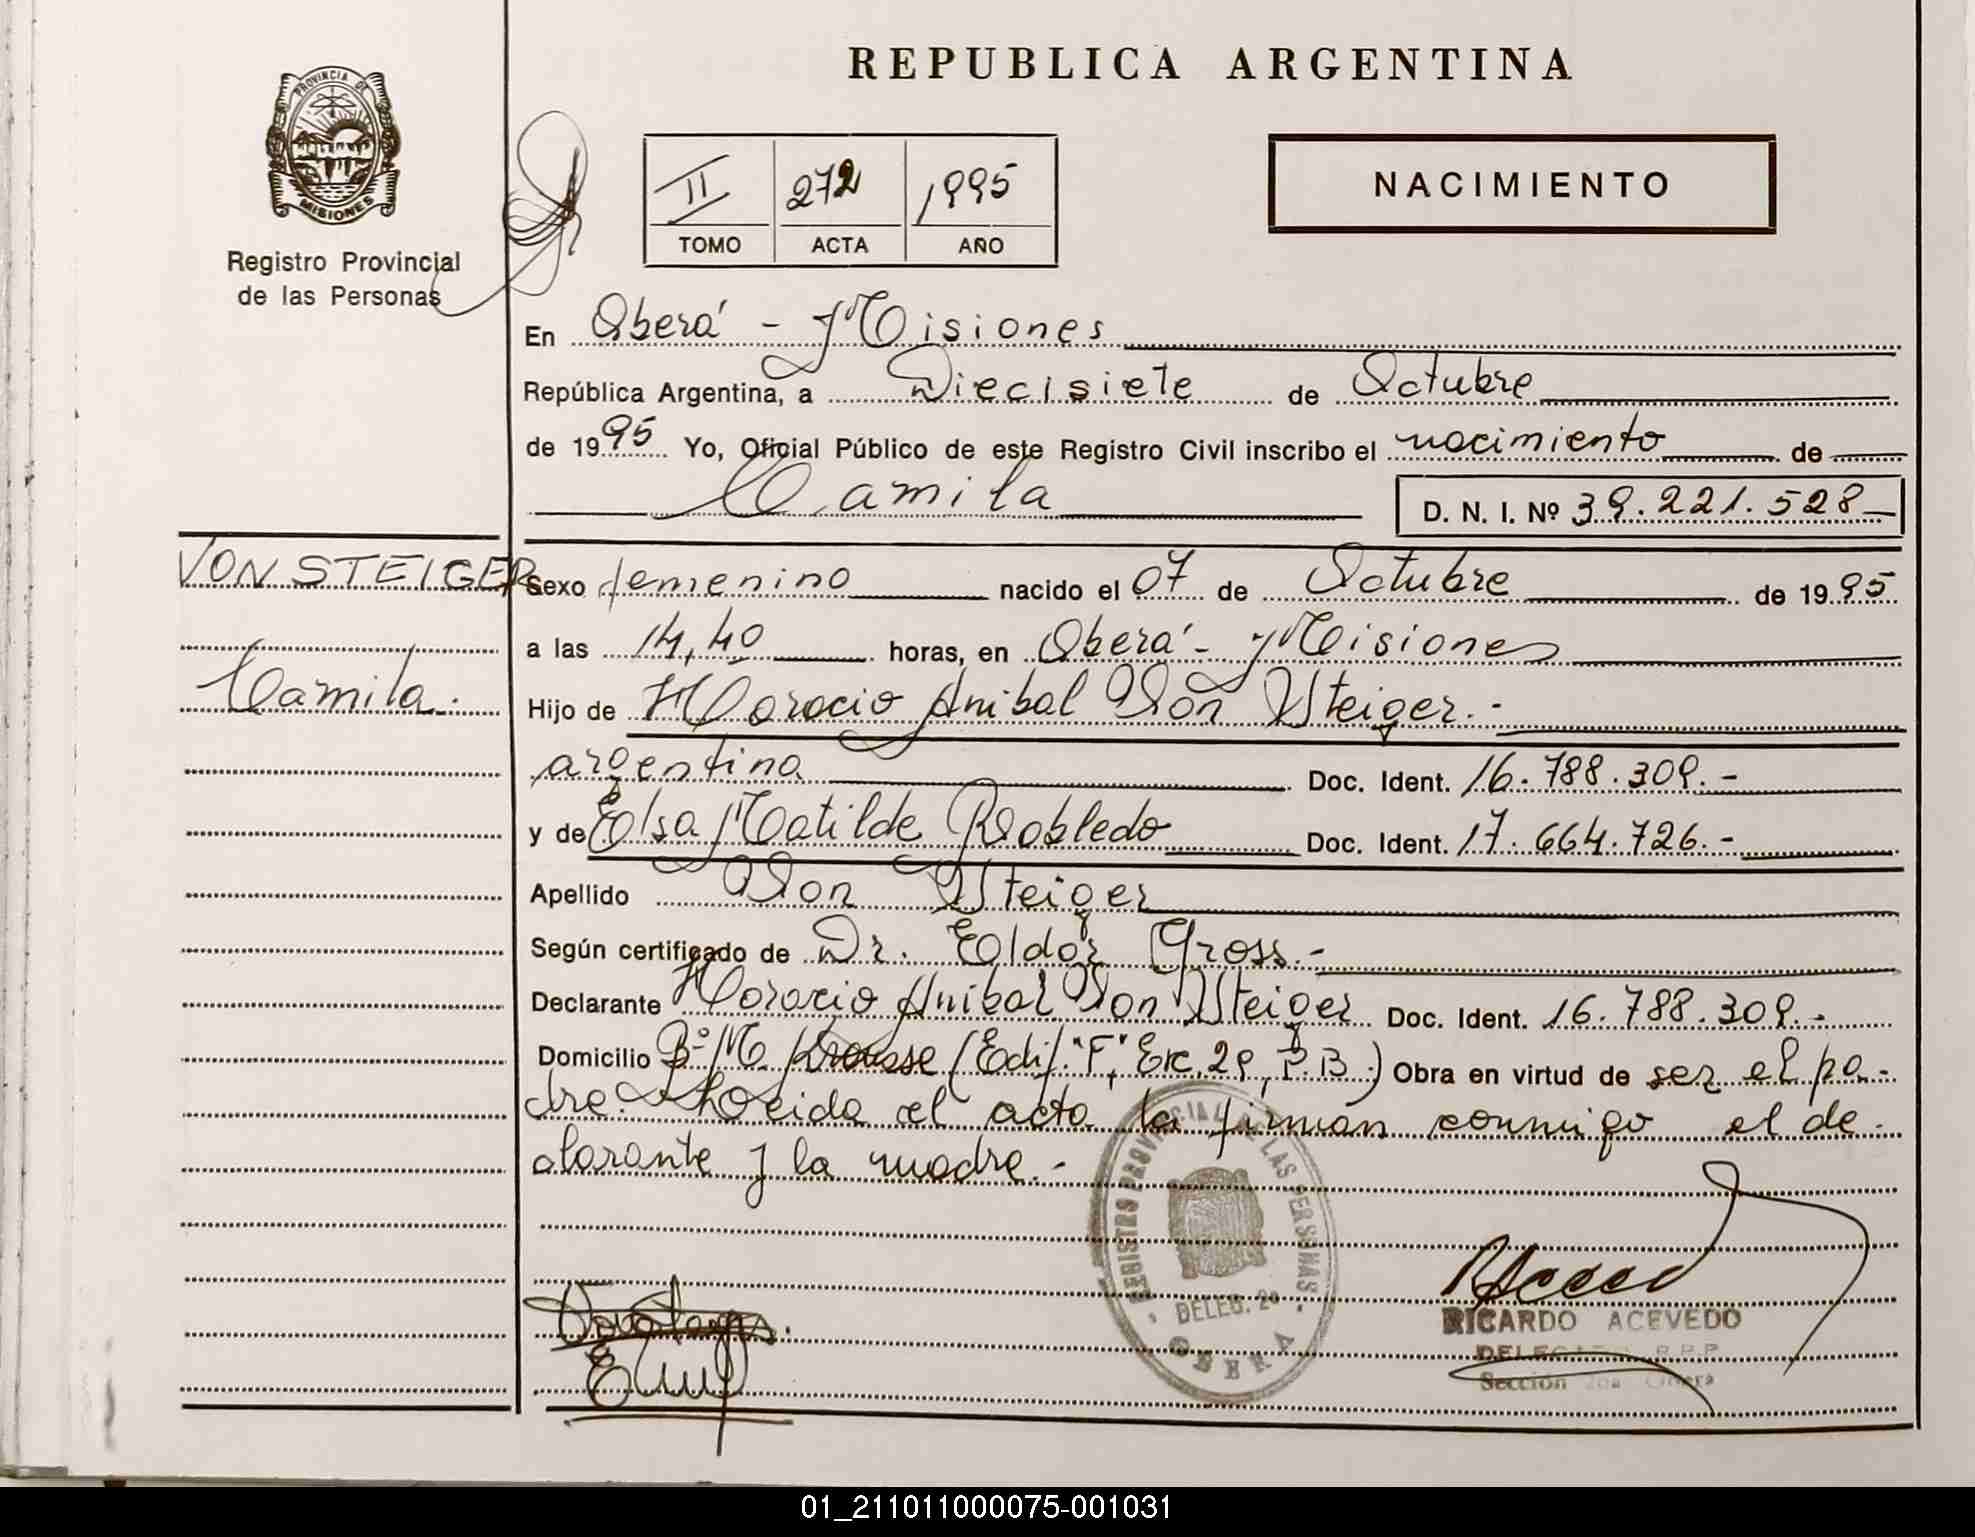 REPUBLICA ARGENTINA
PROVINCIA DE
MISIONES
Registro Provincial
de las Personas
II 272 1995
TOMO ACTA AÑO
NACIMIENTO
En Oberá - Misiones
República Argentina, a Diecisiete de Octubre
de 1995 Yo, Oficial Público de este Registro Civil inscribo el nacimiento de
Camila
D. N. I. Nº 39.221.528
VON STEIGER
Camila.
Sexo femenino nacido el 07 de Octubre de 1995
a las 14,40 horas, en Oberá - Misiones
Hijo de Horacio Anibal Von Steiger.-
argentina Doc. Ident. 16.788.309.-
y de Elsa Matilde Robledo Doc. Ident. 17.664.726.-
Apellido Von Steiger
Según certificado de Dr. Eldor Gross.-
Declarante Horacio Anibal Von Steiger Doc. Ident. 16.788.309.-
Domicilio Bº M. (Edif. "F", Esc. 29, P.B.) Obra en virtud de ser el pa-
dre. leida el acta la firman conmigo el de-
clarante y la madre.-
REGISTRO PROVINCIAL DE LAS PERSONAS
DELEG. 2ª
OBERA
RICARDO ACEVEDO
DELEGADO R.P.P
Sección 2da Oberá
01_211011000075-001031